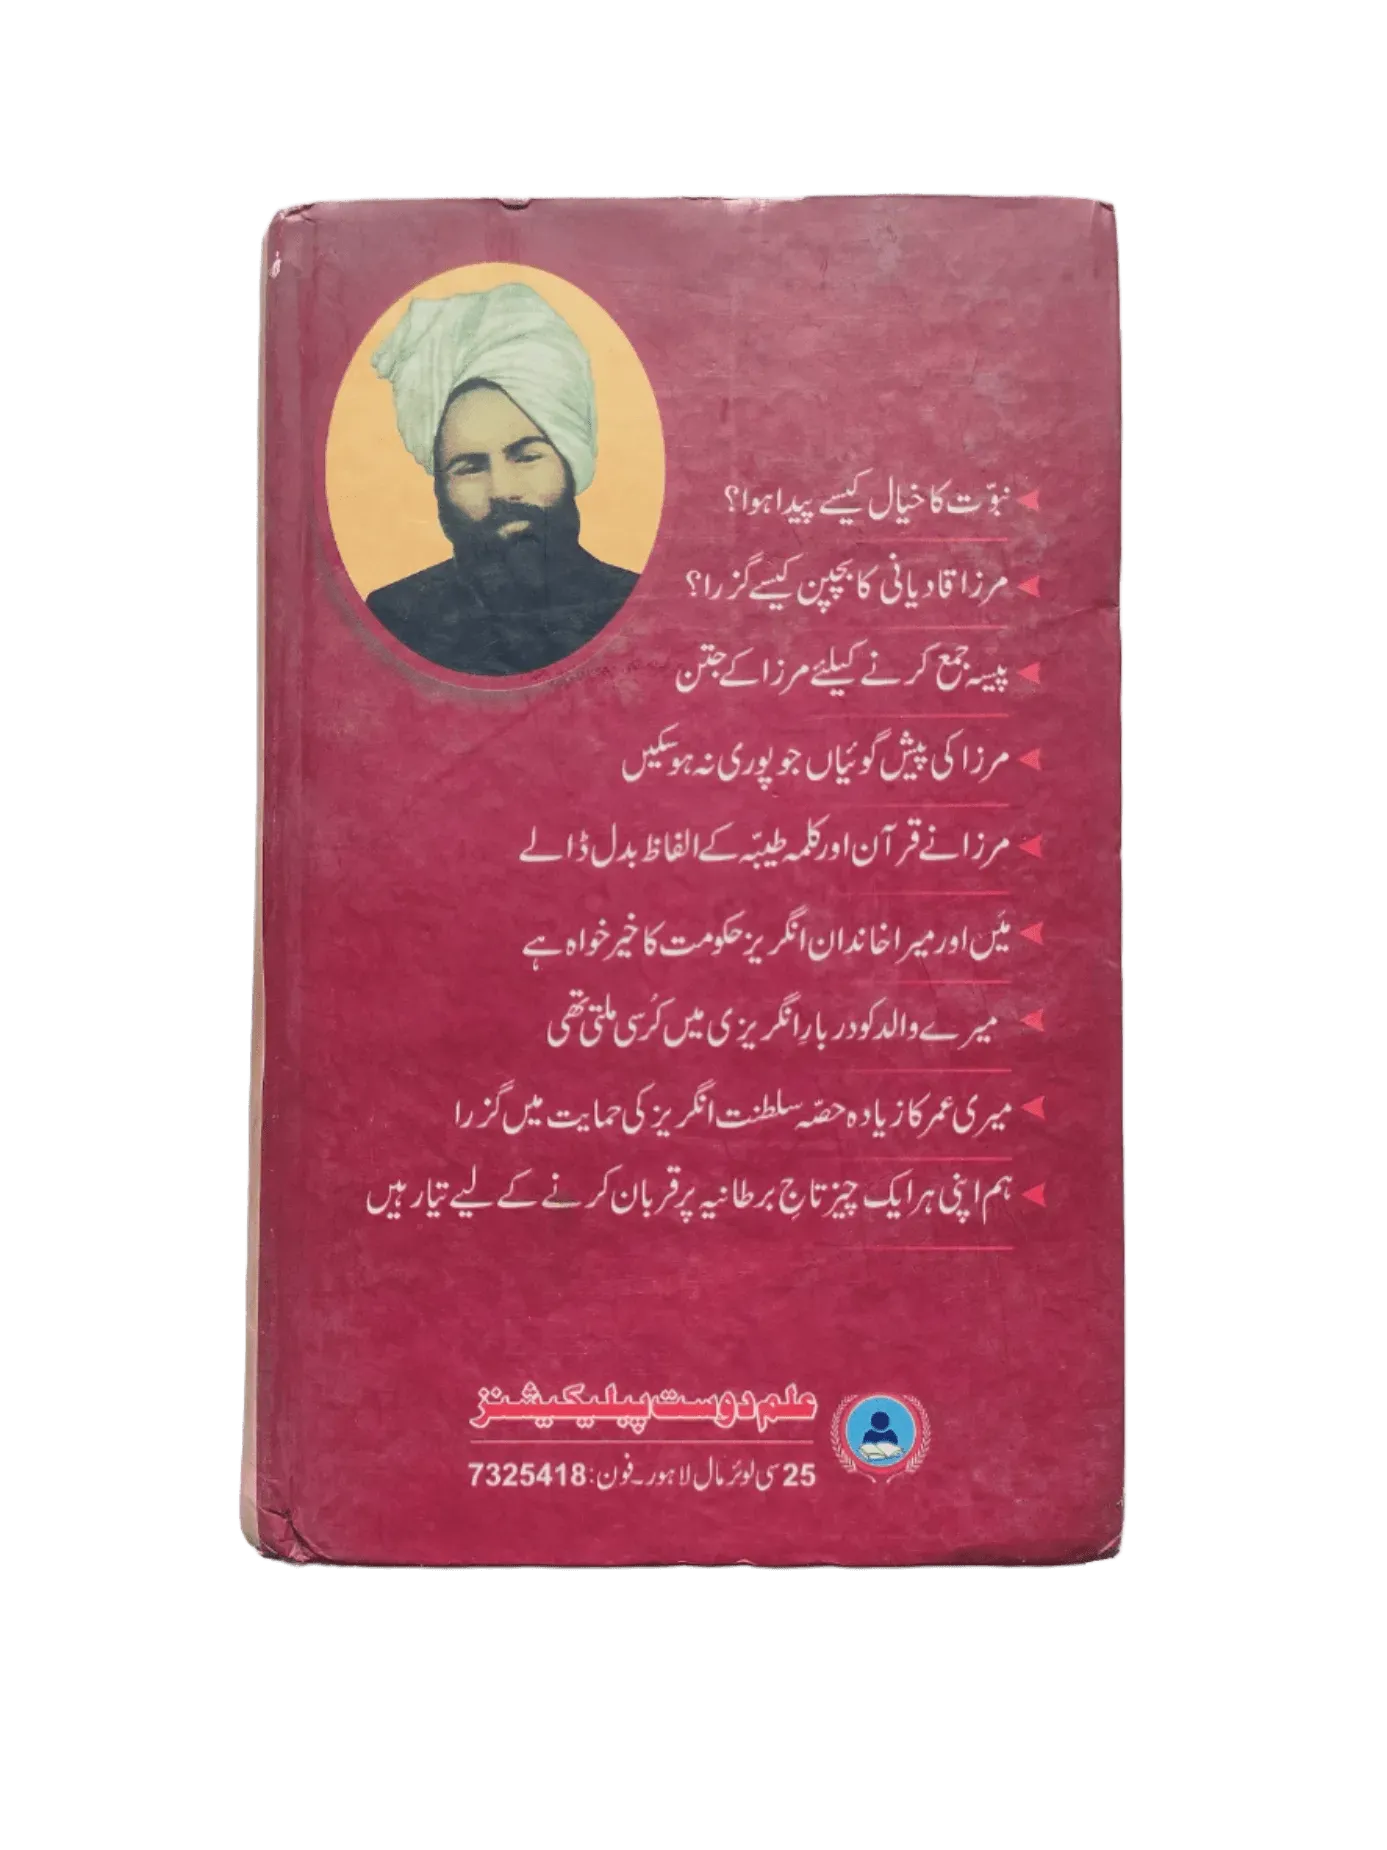 نبوّت کا خیال کیسے پیدا ہوا؟
مرزا قادیانی کا بچپن کیسے گزرا؟
پیسہ جمع کرنے کیلئے مرزا کے جتن
مرزا کی پیش گوئیاں جو پوری نہ ہوسکیں
مرزا نے قرآن اور کلمہ طیبّہ کے الفاظ بدل ڈالے
میَں اور میرا خاندان انگریز حکومت کا خیر خواہ ہے
میرے والد کو دربارِ انگریزی میں کُرسی ملتی تھی
میری عمر کا زیادہ حصّہ سلطنت انگریز کی حمایت میں گزرا
ہم اپنی ہر ایک چیز تاجِ برطانیہ پر قربان کرنے کے لیے تیار ہیں
علم دوست پبلیکیشنز
25 سی لوئر مال لاہور۔ فون: 7325418